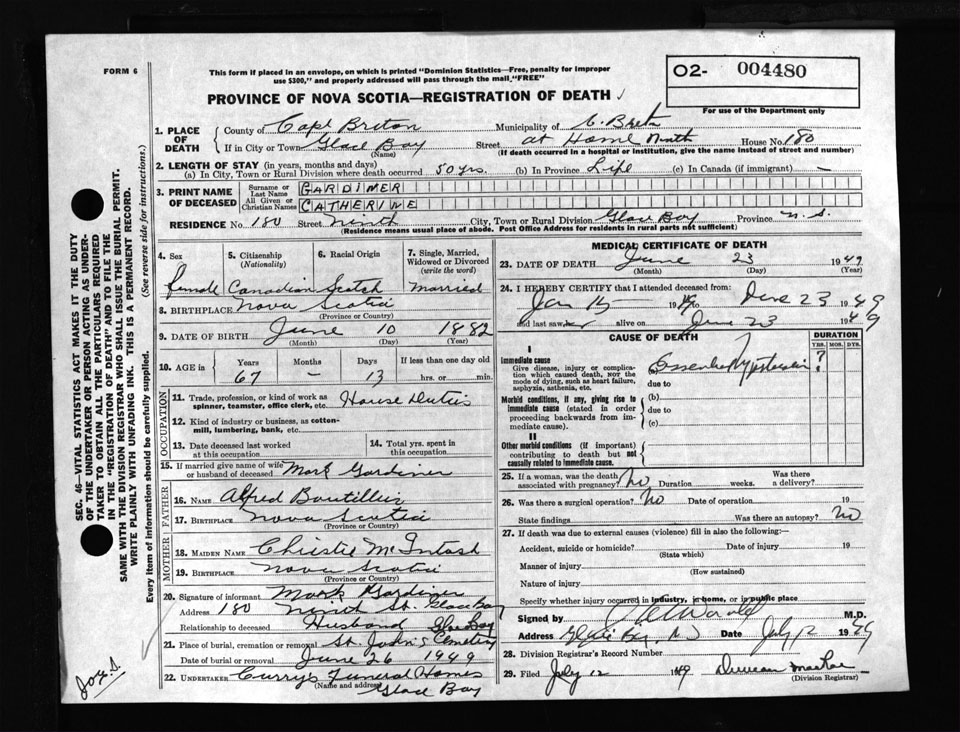 FORM 6
This form if placed in an envelope, on which is printed "Dominion Statistics—Free, penalty for improper
use $300," and properly addressed will pass through the mail "FREE"
O2- 004480
For use of the Department only
PROVINCE OF NOVA SCOTIA—REGISTRATION OF DEATH
1. PLACE OF DEATH { County of Cape Breton Municipality of C. Breton
If in City or Town Glace Bay (Name) Street at Home Ninth House No. 180
(If death occurred in a hospital or institution, give the name instead of street and number)
2. LENGTH OF STAY (in years, months and days)
(a) In City, Town or Rural Division where death occurred 50 yrs. (b) In Province Life (c) In Canada (if immigrant) —
3. PRINT NAME OF DECEASED { Surname or Last Name GARDINER
All Given or Christian Names CATHERINE
RESIDENCE No. 180 Street Ninth City, Town or Rural Division Glace Bay Province N.S.
(Residence means usual place of abode. Post Office Address for residents in rural parts not sufficient)
4. Sex female
5. Citizenship (Nationality) Canadian
6. Racial Origin Scotch
7. Single, Married, Widowed or Divorced (write the word) Married
8. BIRTHPLACE Nova Scotia
(Province or Country)
9. DATE OF BIRTH June 10 1882
(Month) (Day) (Year)
10. AGE in { Years 67 Months — Days 13 If less than one day old hrs. or min.
OCCUPATION
11. Trade, profession, or kind of work as spinner, teamster, office clerk, etc. House Duties
12. Kind of industry or business, as cotton-mill, lumbering, bank, etc.
13. Date deceased last worked at this occupation
14. Total yrs. spent in this occupation.
15. If married give name of wife or husband of deceased Mark Gardiner
FATHER
16. NAME Alfred Boutillier
17. BIRTHPLACE Nova Scotia
(Province or Country)
MOTHER
18. MAIDEN NAME Christie McIntosh
19. BIRTHPLACE Nova Scotia
(Province or Country)
20. Signature of informant Mark Gardiner
Address 180 Ninth St. Glace Bay
Relationship to deceased Husband Glace Bay
21. Place of burial, cremation or removal St. John's Cemetery
Date of burial or removal June 26 1949
22. UNDERTAKER Curry's Funeral Homes
(Name and address) Glace Bay
MEDICAL CERTIFICATE OF DEATH
23. DATE OF DEATH June 23 1949
(Month) (Day) (Year)
24. I HEREBY CERTIFY that I attended deceased from:
Jan 15 1949 to June 23 1949
and last saw her alive on June 23 1949
CAUSE OF DEATH
DURATION
YRS. MOS. DYS.
I
Immediate cause
Give disease, injury or complication which caused death, not the mode of dying, such as heart failure, asphyxia, asthenia, etc.
(a) Essential Hypertension ?
due to
Morbid conditions, if any, giving rise to immediate cause (stated in order proceeding backwards from immediate cause).
(b)
due to
(c)
II
Other morbid conditions (if important) contributing to death but not causally related to immediate cause.
25. If a woman, was the death associated with pregnancy? No Duration weeks. Was there a delivery?
26. Was there a surgical operation? No Date of operation 19
State findings Was there an autopsy? No
27. If death was due to external causes (violence) fill in also the following:—
Accident, suicide or homicide? Date of injury 19
(State which)
Manner of injury
(How sustained)
Nature of injury
Specify whether injury occurred in industry, in home, or in public place
Signed by M.D.
Address Glace Bay, N.S. Date July 12 1949
28. Division Registrar's Record Number
29. Filed July 12 1949 Duncan MacRae
(Division Registrar)
SEC. 46—VITAL STATISTICS ACT MAKES IT THE DUTY
OF THE UNDERTAKER OR PERSON ACTING AS UNDER-
TAKER TO OBTAIN ALL THE PARTICULARS REQUIRED
IN THE "REGISTRATION OF DEATH" AND TO FILE THE
SAME WITH THE DIVISION REGISTRAR WHO SHALL ISSUE THE BURIAL PERMIT.
WRITE PLAINLY WITH UNFADING INK. THIS IS A PERMANENT RECORD.
Every item of information should be carefully supplied. (See reverse side for instructions.)